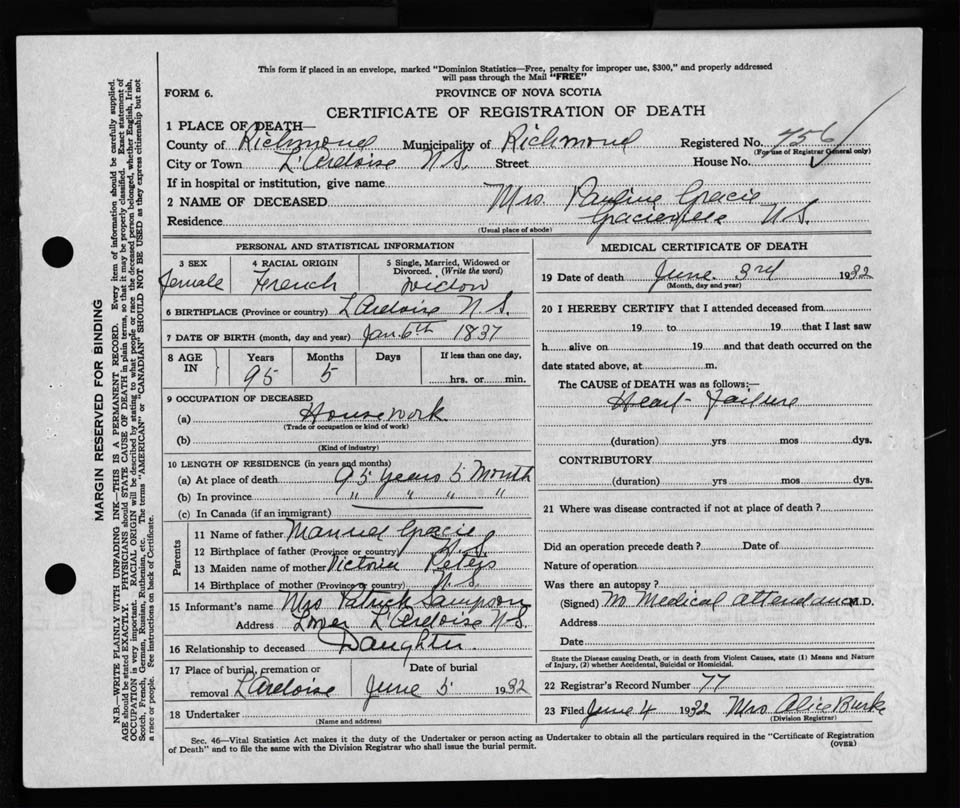 This form if placed in an envelope, marked "Dominion Statistics—Free, penalty for improper use, $300," and properly addressed
will pass through the Mail "FREE"
FORM 6.
PROVINCE OF NOVA SCOTIA
CERTIFICATE OF REGISTRATION OF DEATH
1 PLACE OF DEATH—
County of Richmond Municipality of Richmond Registered No. 756
(For use of Registrar General only)
City or Town L'Ardoise N.S. Street House No.
If in hospital or institution, give name
2 NAME OF DECEASED Mrs. Pauline Gracie
Residence Gracieville N.S.
(Usual place of abode)
PERSONAL AND STATISTICAL INFORMATION
3 SEX
Female
4 RACIAL ORIGIN
French
5 Single, Married, Widowed or Divorced. (Write the word)
Widow
6 BIRTHPLACE (Province or country) L'Ardoise N.S.
7 DATE OF BIRTH (month, day and year) Jan. 6th 1837
8 AGE IN
Years Months Days If less than one day,
95 5 hrs. or min.
9 OCCUPATION OF DECEASED
(a) Housework
(Trade or occupation or kind of work)
(b)
(Kind of industry)
10 LENGTH OF RESIDENCE (in years and months)
(a) At place of death 95 years 5 Month
(b) In province " " " "
(c) In Canada (if an immigrant)
Parents
11 Name of father Manuel Gracie
12 Birthplace of father (Province or country) N.S.
13 Maiden name of mother Victoria Peters
14 Birthplace of mother (Province or country) N.S.
15 Informant's name Mrs Patrick Sampson
Address Lower L'Ardoise N.S.
16 Relationship to deceased Daughter.
17 Place of burial, cremation or removal L'Ardoise
Date of burial June 5 1932
18 Undertaker
(Name and address)
MEDICAL CERTIFICATE OF DEATH
19 Date of death June 3rd 1932
(Month, day and year)
20 I HEREBY CERTIFY that I attended deceased from
19 to 19 that I last saw
h alive on 19 and that death occurred on the
date stated above, at m.
The CAUSE of DEATH was as follows:—
Heart Failure
(duration) yrs mos dys.
CONTRIBUTORY
(duration) yrs mos dys.
21 Where was disease contracted if not at place of death?
Did an operation precede death? Date of
Nature of operation
Was there an autopsy?
(Signed) No Medical attendance M.D.
Address
Date
State the Disease causing Death, or in death from Violent Causes, state (1) Means and Nature
of Injury, (2) whether Accidental, Suicidal or Homicidal.
22 Registrar's Record Number 77
23 Filed June 4 1932 Mrs Alice Burke
(Division Registrar)
Sec. 46—Vital Statistics Act makes it the duty of the Undertaker or person acting as Undertaker to obtain all the particulars required in the "Certificate of Registration
of Death" and to file the same with the Division Registrar who shall issue the burial permit.
(OVER)
MARGIN RESERVED FOR BINDING
N.B.—WRITE PLAINLY WITH UNFADING INK—THIS IS A PERMANENT RECORD. Every item of information should be carefully supplied.
AGE should be stated EXACTLY. PHYSICIANS should STATE CAUSE OF DEATH in plain terms, so that it may be properly classified. Exact statement of
OCCUPATION is very important. RACIAL ORIGIN will be described by stating to what people or race the deceased person belonged, whether English, Irish,
Scotch, French, German, Russian, Ruthenian, etc. The terms "AMERICAN" or "CANADIAN" SHOULD NOT BE USED as they express citizenship but not
a race or people. See instructions on back of Certificate.